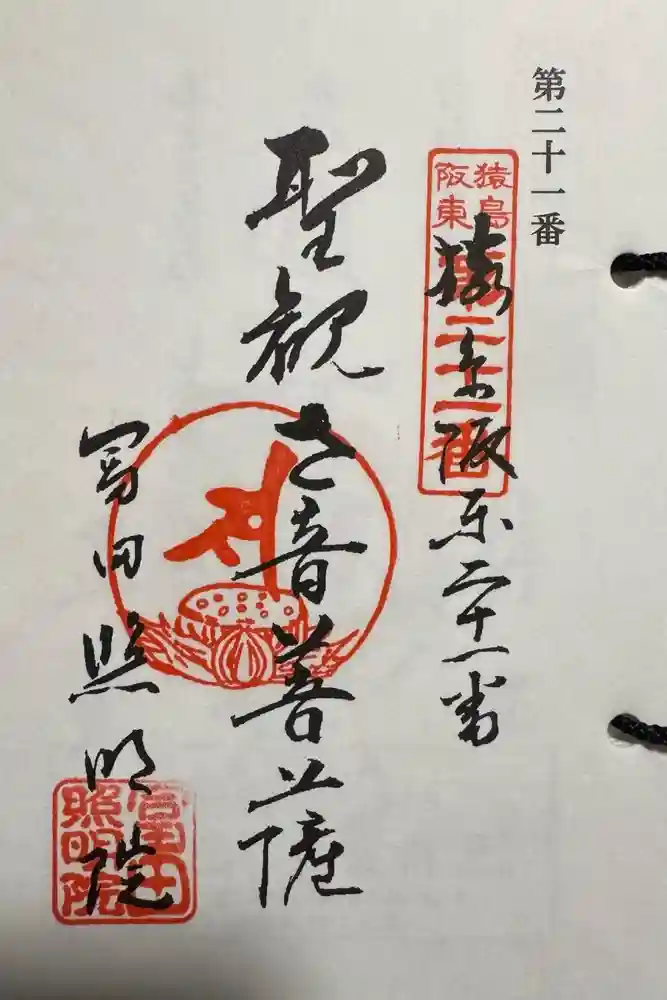 第二十一番
猿島
阪東
第二十一番
猿島阪東二十一番
聖観世音菩薩
冨田 照明院
富田
照明院